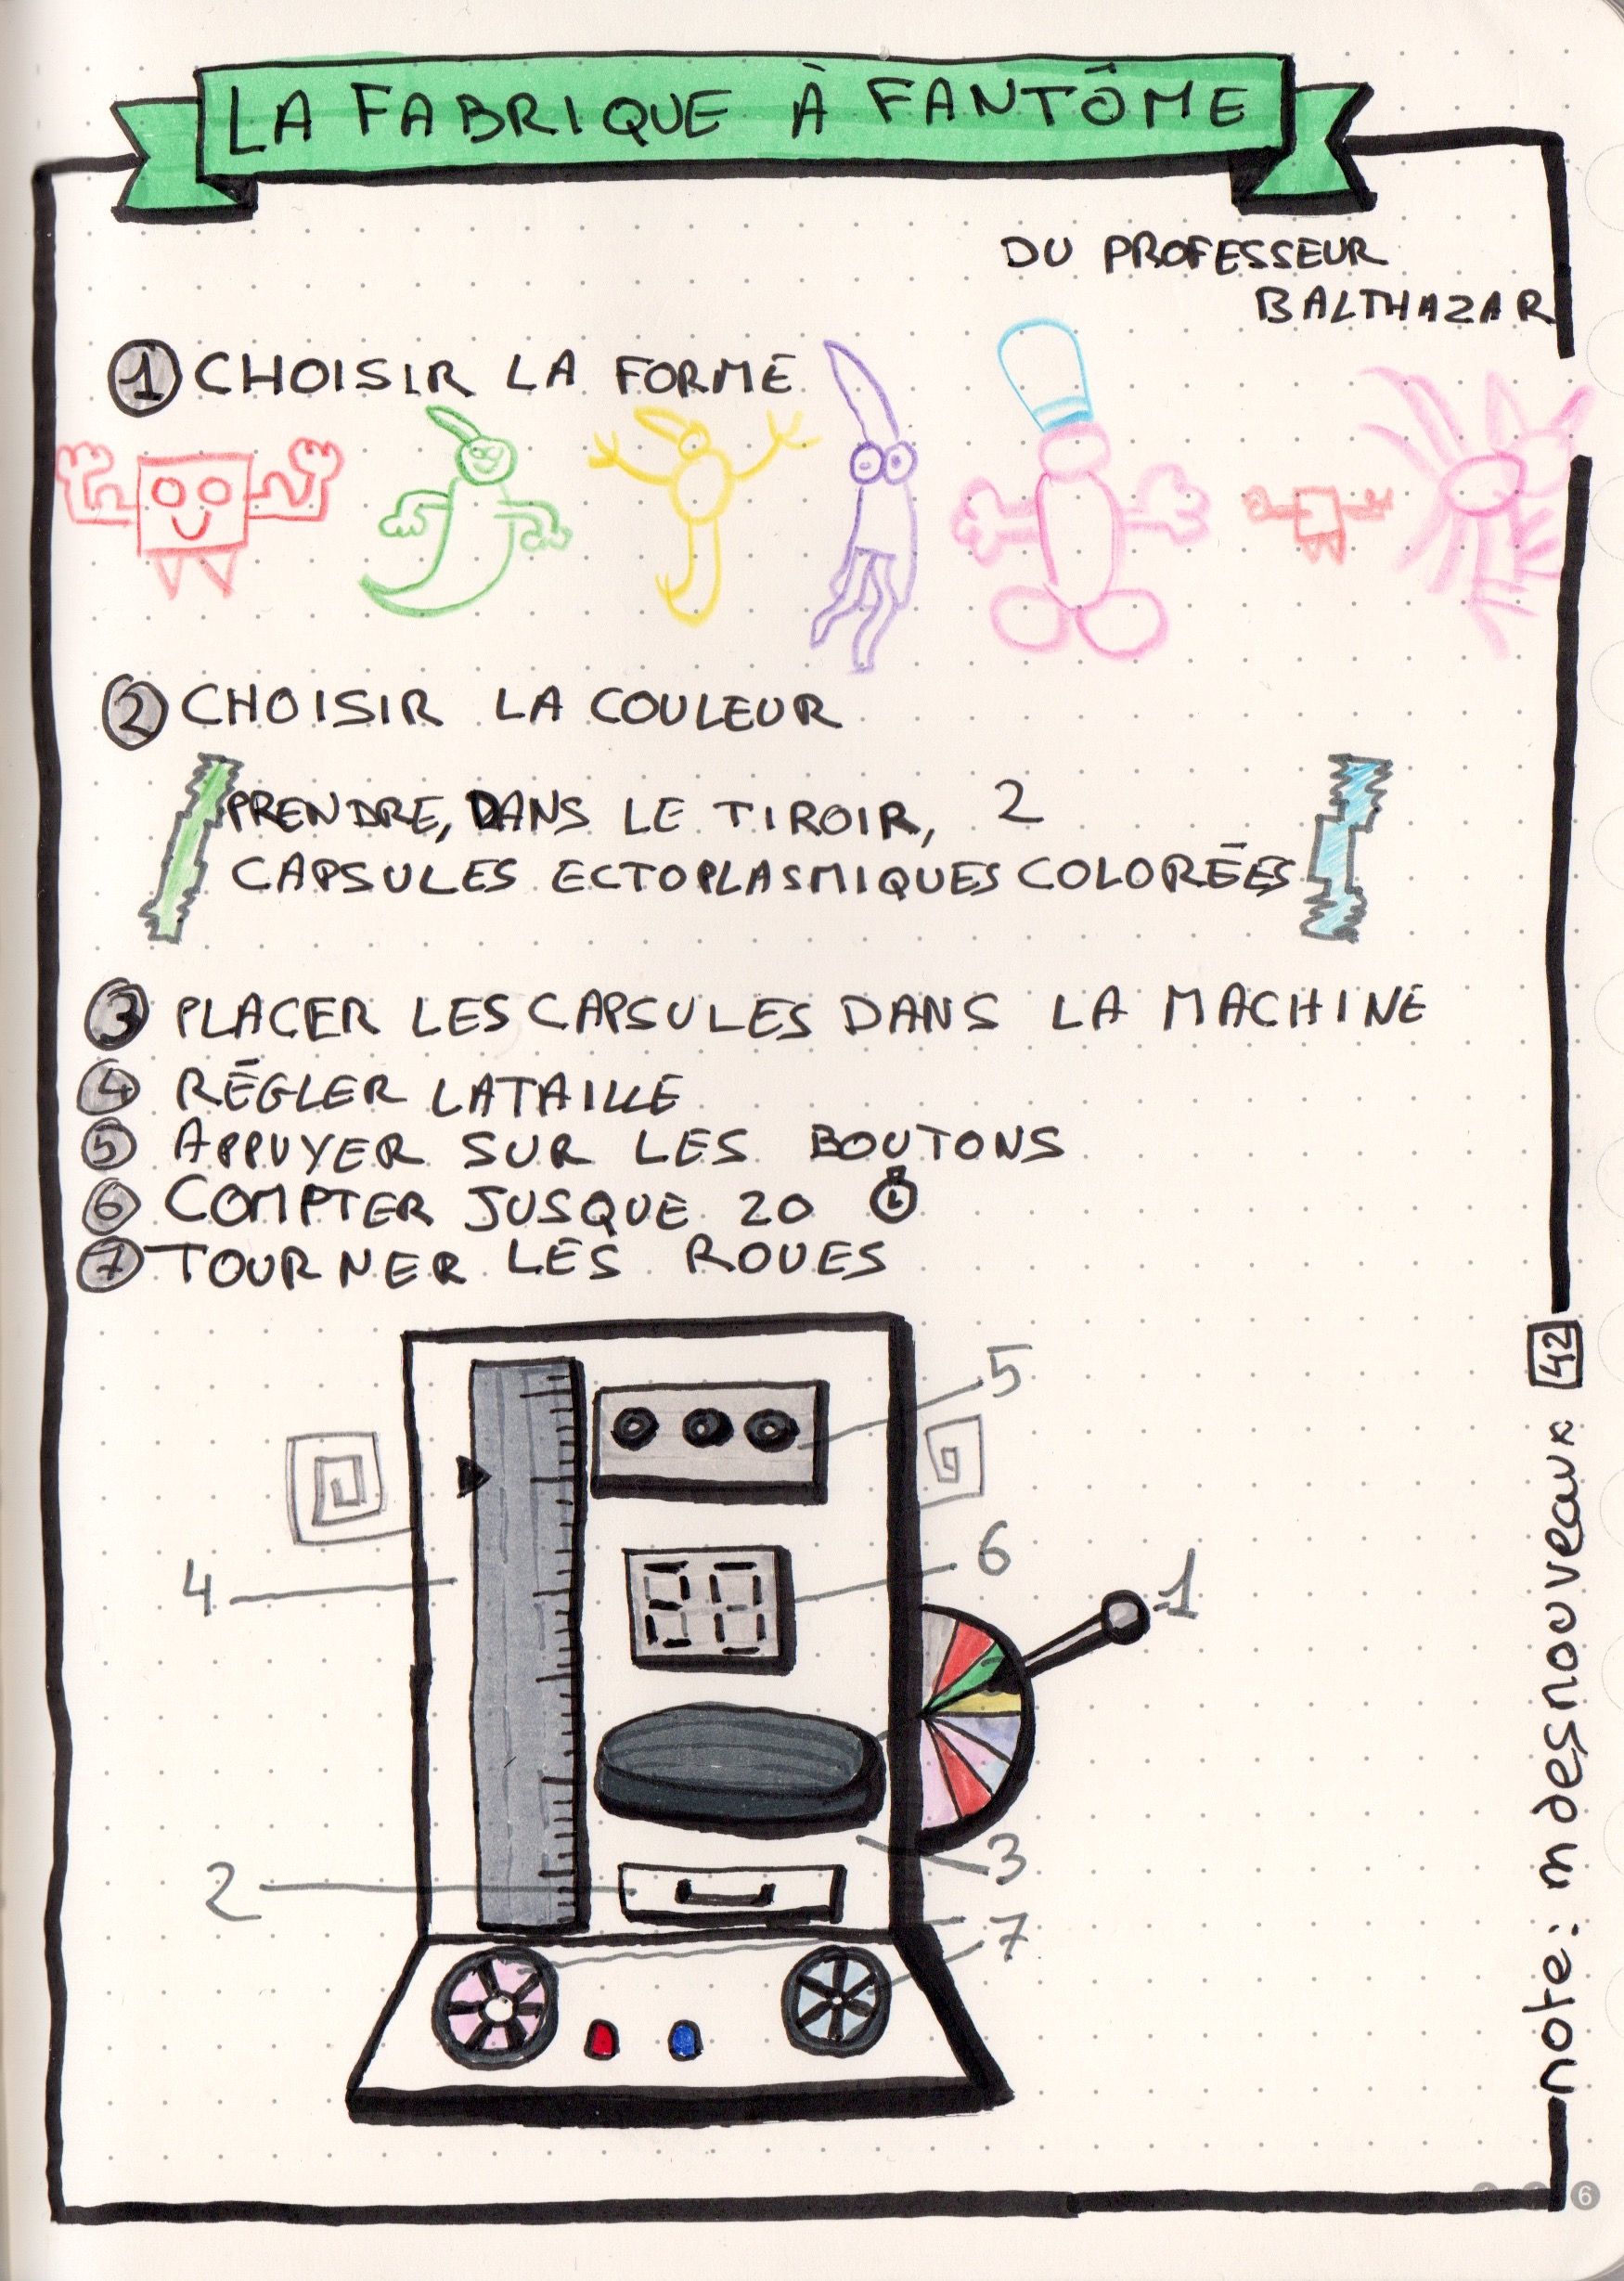 LA FABRIQUE À FANTÔME
DU PROFESSEUR
BALTHAZAR
1 CHOISIR LA FORME
2 CHOISIR LA COULEUR
PRENDRE, DANS LE TIROIR, 2
CAPSULES ECTOPLASMIQUES COLORÉES
3 PLACER LES CAPSULES DANS LA MACHINE
4 RÉGLER LA TAILLE
5 APPUYER SUR LES BOUTONS
6 COMPTER JUSQUE 20
7 TOURNER LES ROUES
5
6
4
20
1
3
2
7
note: mdesnouveaux 42
6